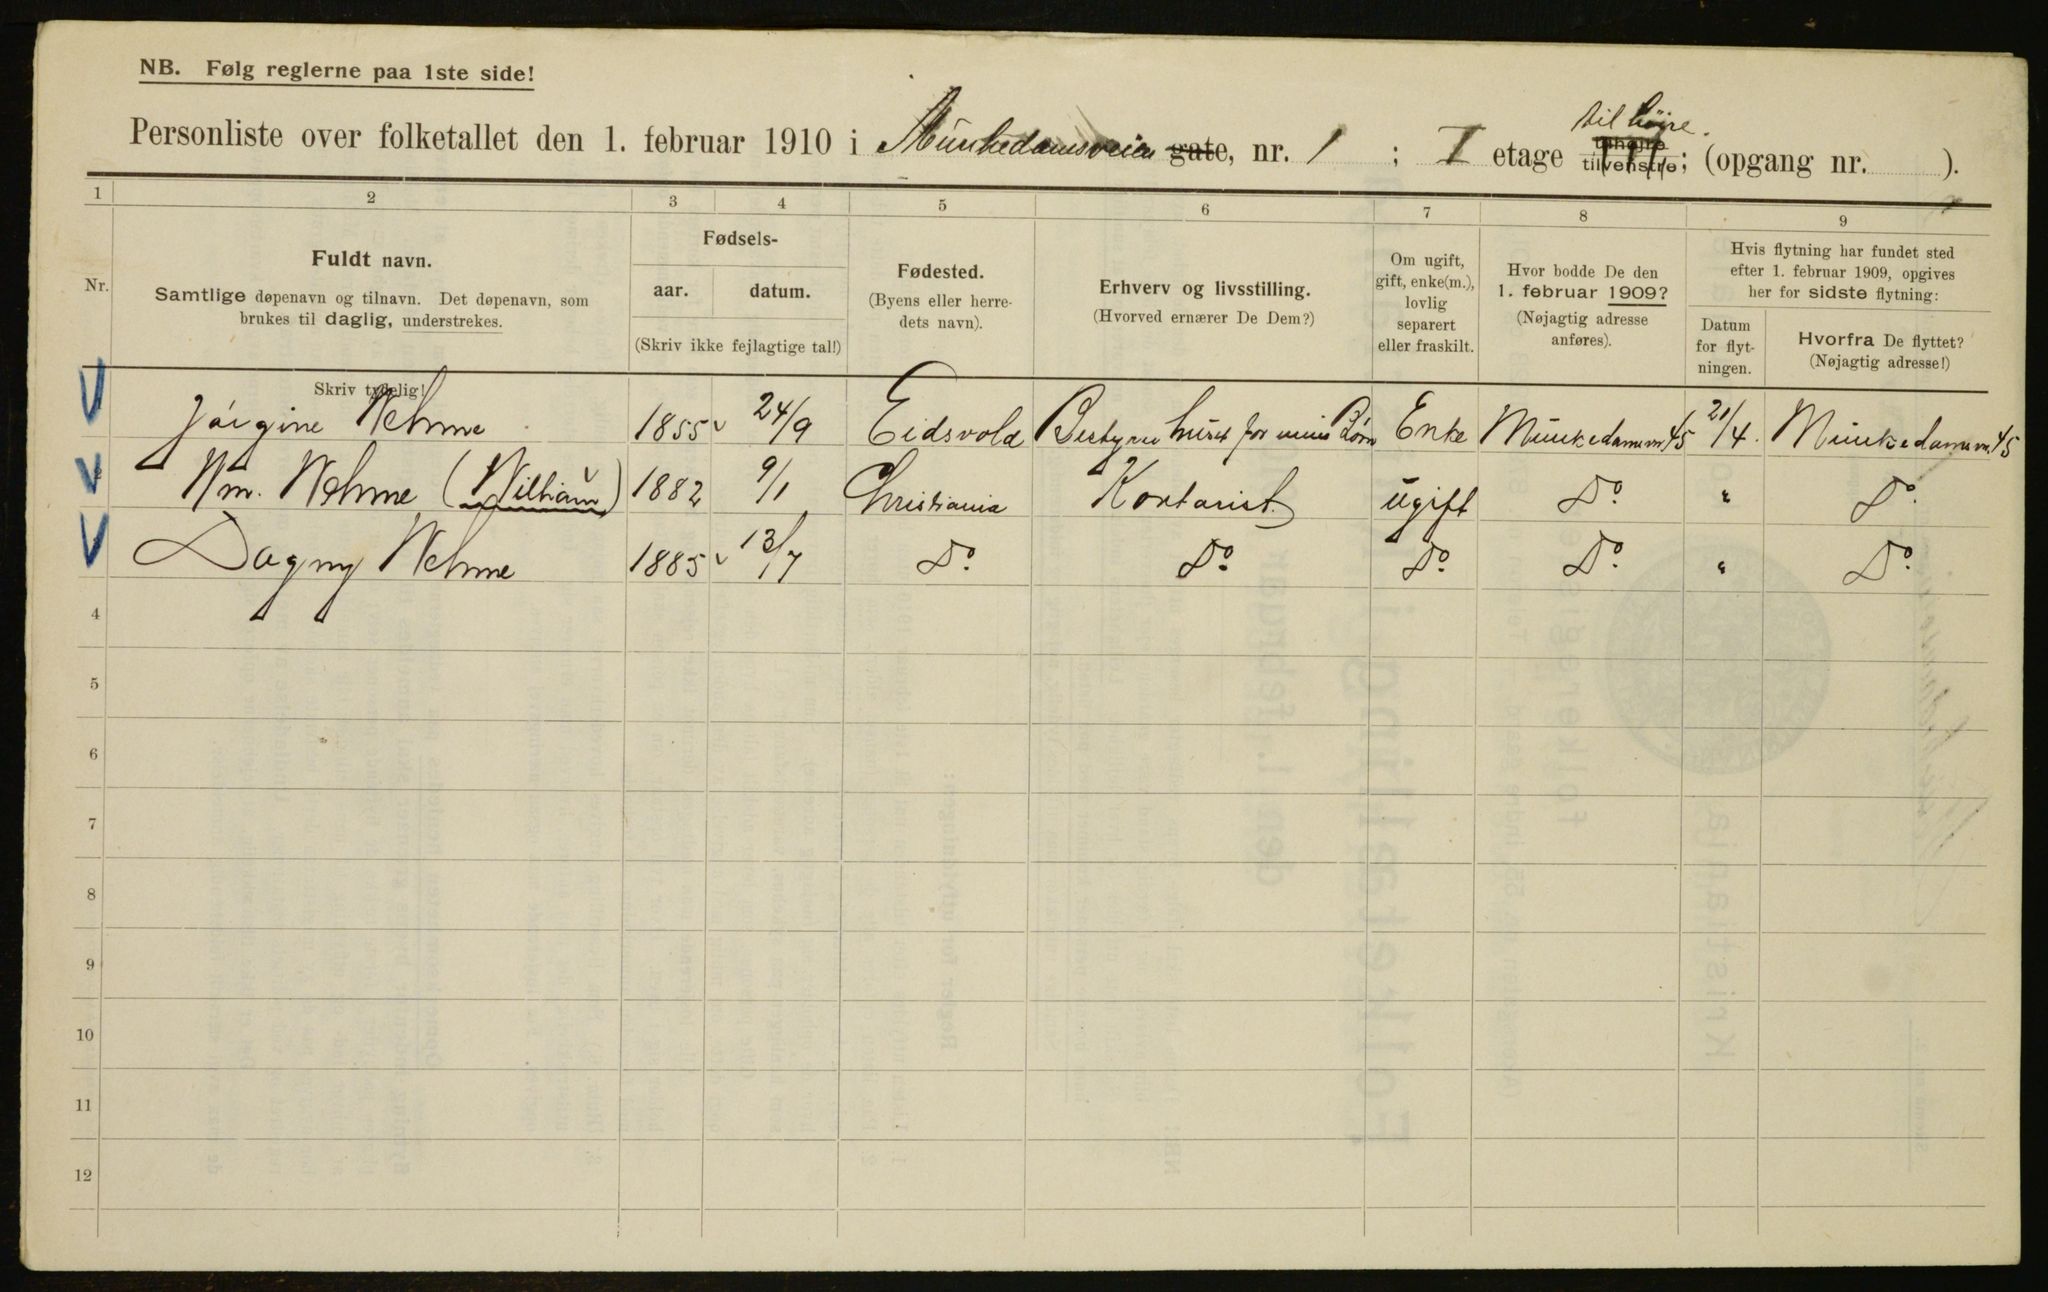 NB. Følg reglerne paa 1ste side!
til høire.
Personliste over folketallet den 1. februar 1910 i Munkedamsveien gate, nr. 1 ; I etage tilhøjre tilvenstre; (opgang nr. ).
1 2 3 4 5 6 7 8 9
Nr.
Fuldt navn.
Samtlige døpenavn og tilnavn. Det døpenavn, som
brukes til daglig, understrekes.
Skriv tydelig!
Fødsels-
aar. datum.
(Skriv ikke fejlagtige tal!)
Fødested.
(Byens eller herre-
dets navn).
Erhverv og livsstilling.
(Hvorved ernærer De Dem?)
Om ugift,
gift, enke(m.),
lovlig
separert
eller fraskilt.
Hvor bodde De den
1. februar 1909?
(Nøjagtig adresse
anføres).
Hvis flytning har fundet sted
efter 1. februar 1909, opgives
her for sidste flytning:
Datum
for flyt-
ningen.
Hvorfra De flyttet?
(Nøjagtig adresse!)
Jörgine Wehme 1855 24/9 Eidsvold Bestyrer huset for mine Börn Enke Munkedamsvn 45 21/4. Munkedamsvn. 45
Wm. Wehme (William) 1882 9/1 Christiania Kontorist. ugift Do. " Do.
Dagny Wehme 1885 13/7 Do. Do. Do. Do. " Do.
4
5
6
7
8
9
10
11
12